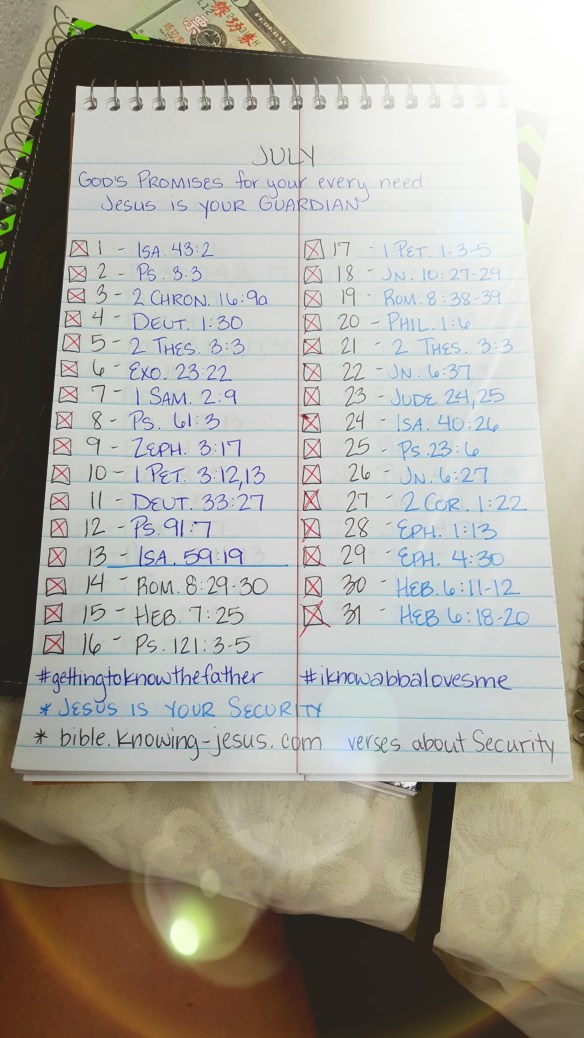 JULY
GOD'S PROMISES for your every need
JESUS IS YOUR GUARDIAN
1 - ISA. 43:2
2 - PS. 3:3
3 - 2 CHRON. 16:9a
4 - DEUT. 1:30
5 - 2 THES. 3:3
6 - EXO. 23:22
7 - 1 SAM. 2:9
8 - PS. 61:3
9 - ZEPH. 3:17
10 - 1 PET. 3:12,13
11 - DEUT. 33:27
12 - PS. 91:7
13 - ISA. 59:19
14 - ROM. 8:29-30
15 - HEB. 7:25
16 - PS. 121:3-5
17 - 1 PET. 1:3-5
18 - JN. 10:27-29
19 - ROM. 8:38-39
20 - PHIL. 1:6
21 - 2 THES. 3:3
22 - JN. 6:37
23 - JUDE 24,25
24 - ISA. 40:26
25 - PS. 23:6
26 - JN. 6:27
27 - 2 COR. 1:22
28 - EPH. 1:13
29 - EPH. 4:30
30 - HEB. 6:11-12
31 - HEB 6:18-20
#gettingtoknowthefather #iknowabbalovesme
* JESUS IS YOUR SECURITY
* bible.knowing-jesus.com verses about Security